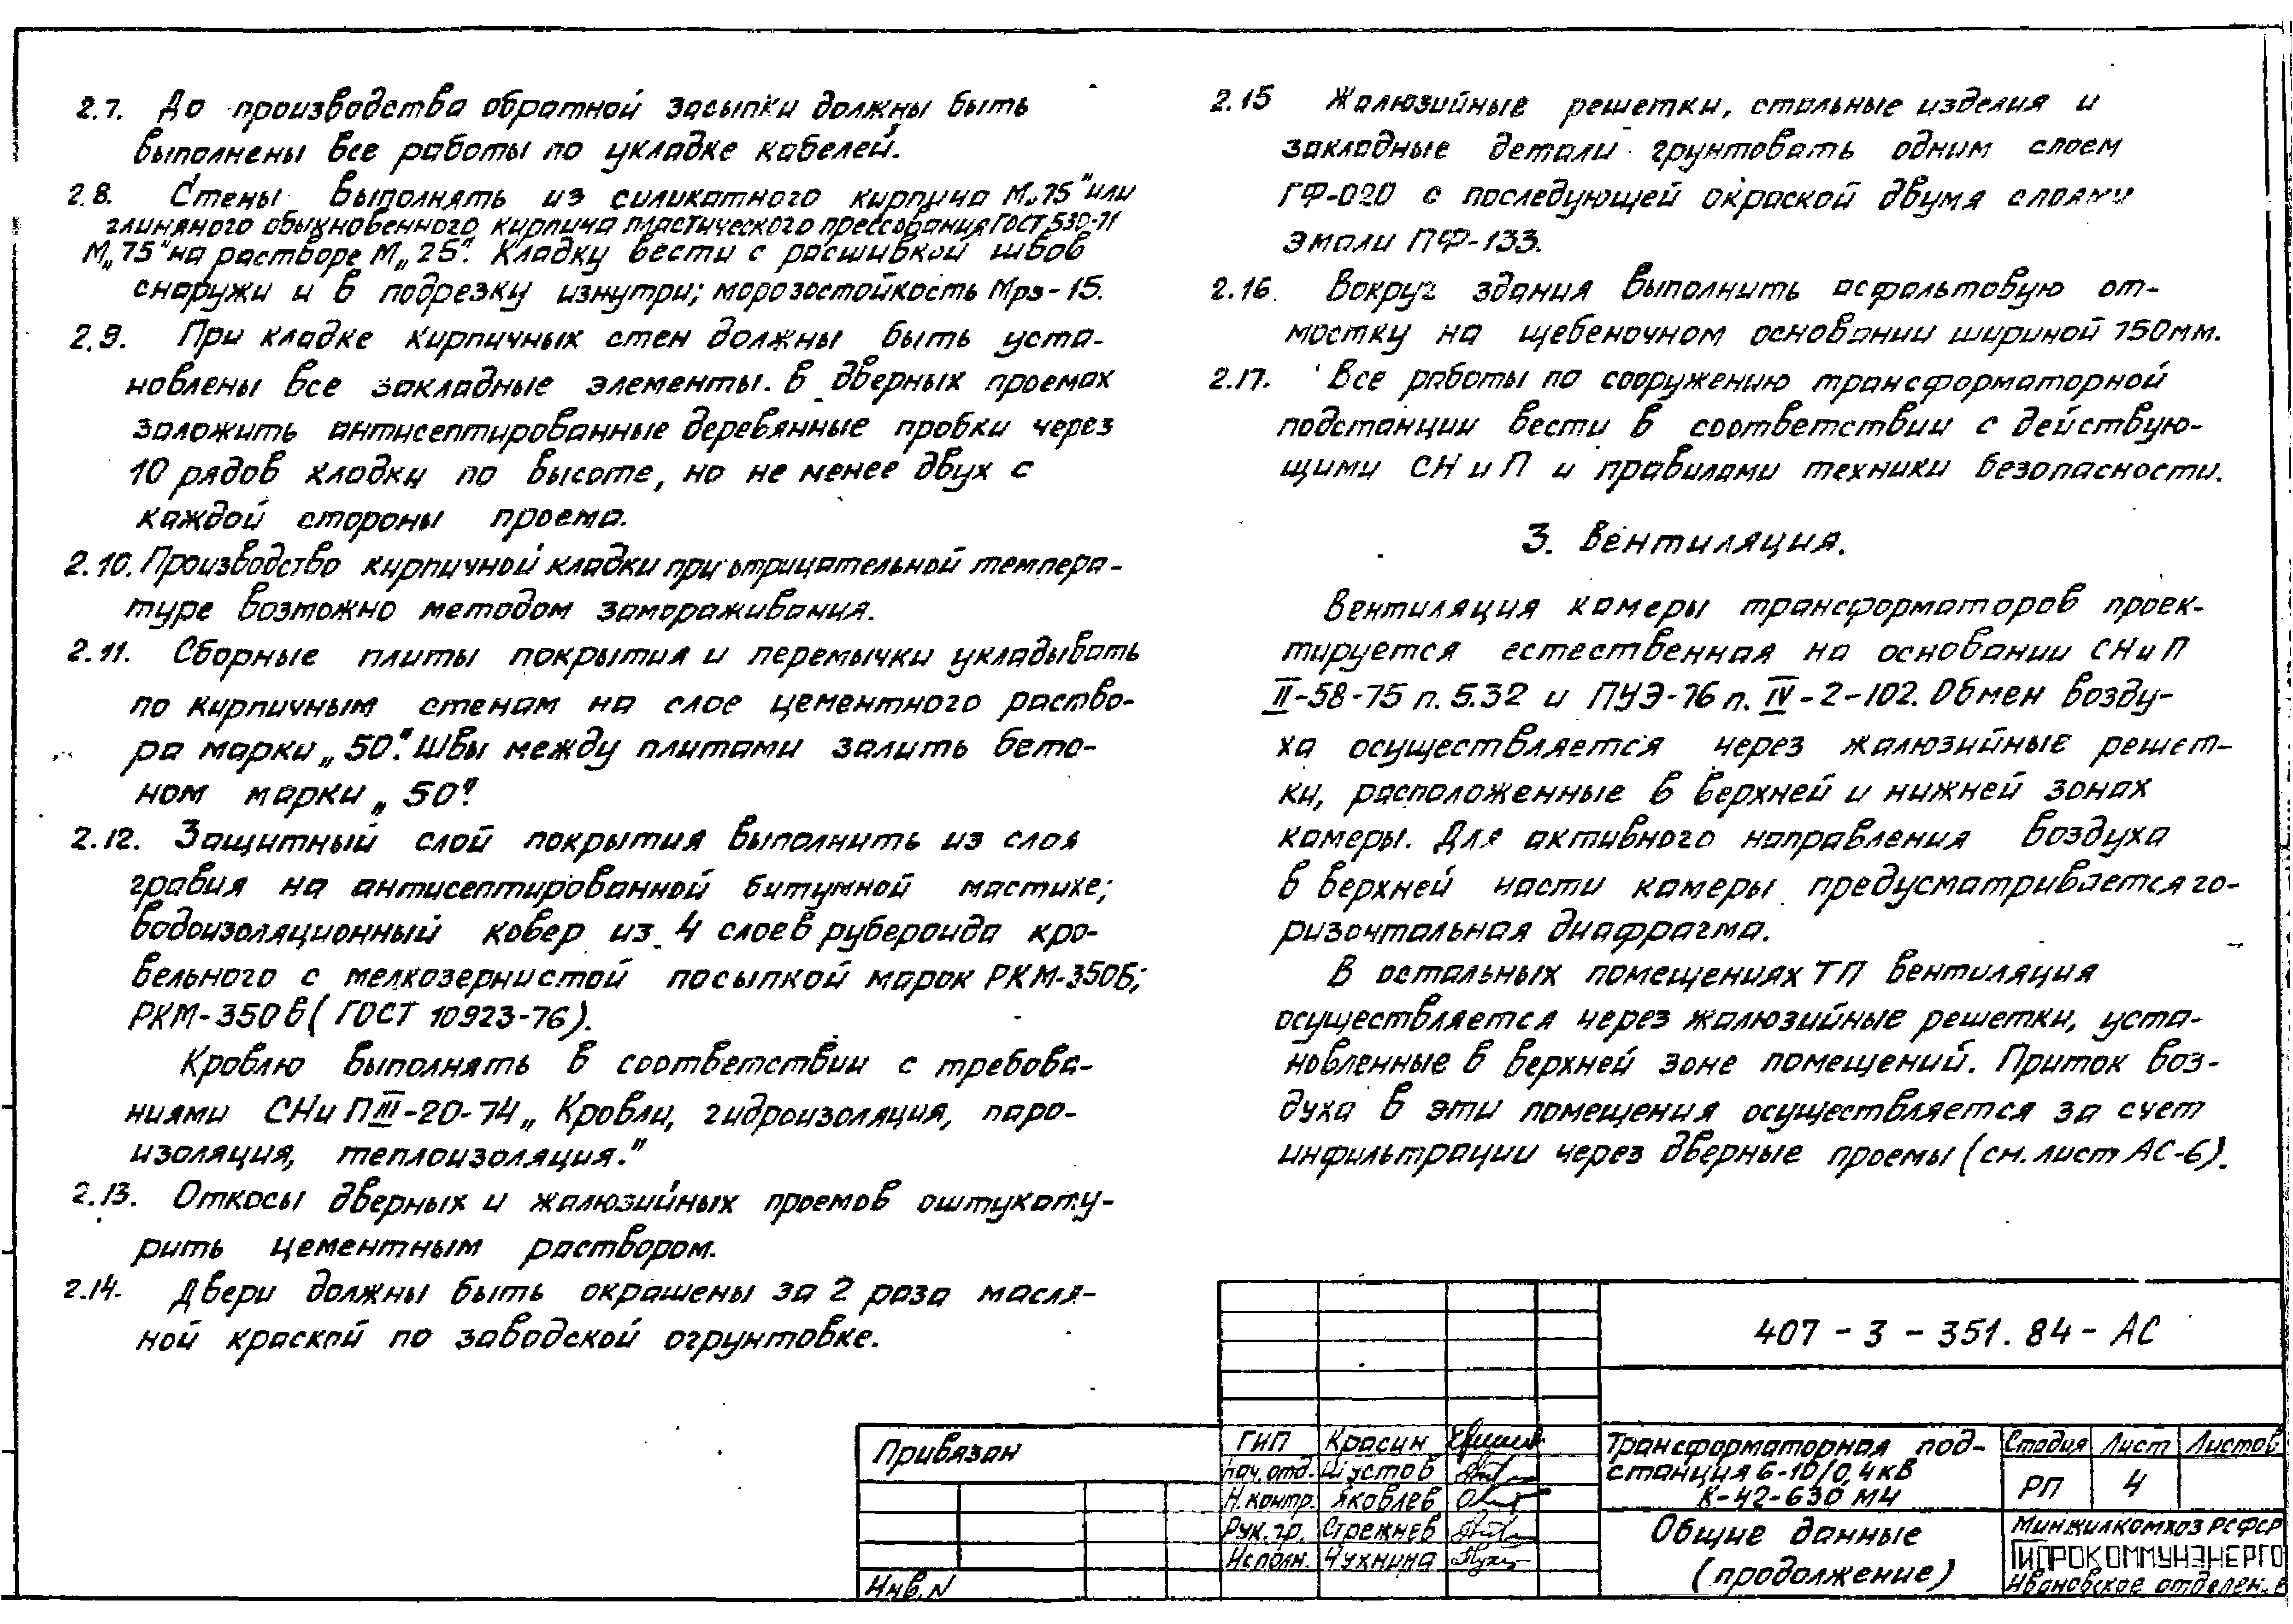 2.7. До производства обратной засыпки должны быть
выполнены все работы по укладке кабелей.
2.8. Стены выполнять из силикатного кирпича М„75" или
глиняного обыкновенного кирпича пластического прессования ГОСТ 530-71
М„75" на растворе М„25". Кладку вести с расшивкой швов
снаружи и в подрезку изнутри; морозостойкость Мрз-15.
2.9. При кладке кирпичных стен должны быть уста-
новлены все закладные элементы. В дверных проемах
заложить антисептированные деревянные пробки через
10 рядов кладки по высоте, но не менее двух с
каждой стороны проема.
2.10. Производство кирпичной кладки при отрицательной темпера-
туре возможно методом замораживания.
2.11. Сборные плиты покрытия и перемычки укладывать
по кирпичным стенам на слое цементного раство-
ра марки „50". Швы между плитами залить бето-
ном марки „50".
2.12. Защитный слой покрытия выполнить из слоя
гравия на антисептированной битумной мастике;
водоизоляционный ковер из 4 слоев рубероида кро-
вельного с мелкозернистой посыпкой марок РКМ-350Б;
РКМ-350В (ГОСТ 10923-76).
Кровлю выполнять в соответствии с требова-
ниями СНиП III-20-74 „Кровли, гидроизоляция, паро-
изоляция, теплоизоляция."
2.13. Откосы дверных и жалюзийных проемов оштукату-
рить цементным раствором.
2.14. Двери должны быть окрашены за 2 раза масля-
ной краской по заводской огрунтовке.
2.15 Жалюзийные решетки, стальные изделия и
закладные детали грунтовать одним слоем
ГФ-020 с последующей окраской двумя слоями
эмали ПФ-133.
2.16. Вокруг здания выполнить асфальтовую от-
мостку на щебеночном основании шириной 750мм.
2.17. Все работы по сооружению трансформаторной
подстанции вести в соответствии с действую-
щими СНиП и правилами техники безопасности.
3. Вентиляция.
Вентиляция камеры трансформаторов проек-
тируется естественная на основании СНиП
II-58-75 п. 5.32 и ПУЭ-76 п. IV-2-102. Обмен возду-
ха осуществляется через жалюзийные решет-
ки, расположенные в верхней и нижней зонах
камеры. Для активного направления воздуха
в верхней части камеры предусматривается го-
ризонтальная диафрагма.
В остальных помещениях ТП вентиляция
осуществляется через жалюзийные решетки, уста-
новленные в верхней зоне помещений. Приток воз-
духа в эти помещения осуществляется за счет
инфильтрации через дверные проемы (см. лист АС-6).
407-3-351.84-АС
Привязан
Инв. N
ГИП Красин
Нач. отд. Шустов
Н. контр. Яковлев
Рук. гр. Стрежнев
Исполн. Чухнина
Трансформаторная под-
станция 6-10/0,4кВ
К-42-630 М4
Стадия Лист Листов
РП 4
Общие данные
(продолжение)
Минжилкомхоз РСФСР
ГИПРОКОММУНЭНЕРГО
Ивановское отделен.